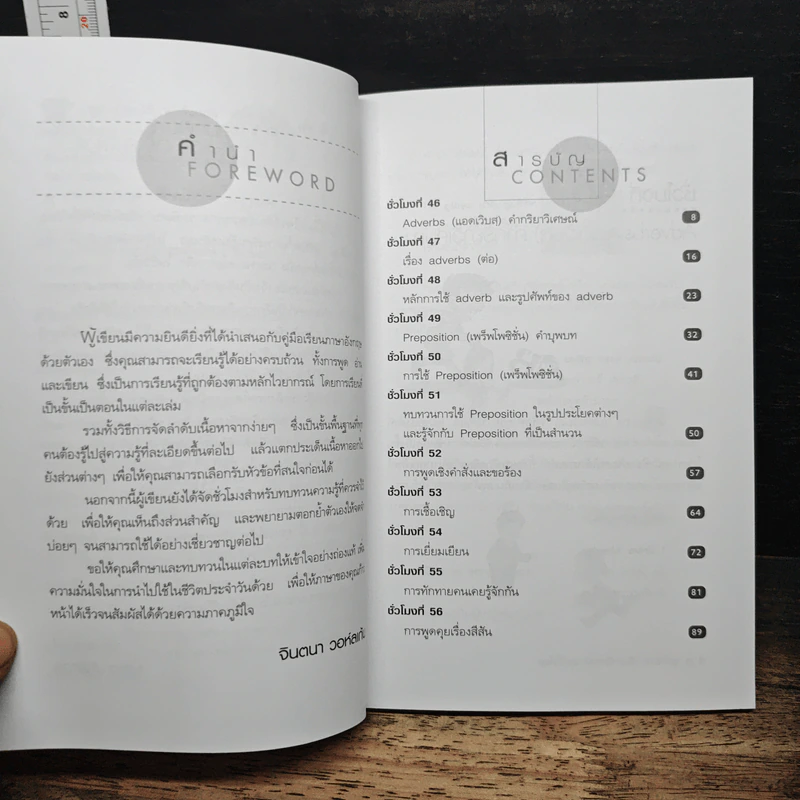 8
20
คำนำ
FOREWORD
ผู้เขียนมีความยินดียิ่งที่ได้นำเสนอกับคู่มือเรียนภาษาอังกฤษ
ด้วยตัวเอง ซึ่งคุณสามารถจะเรียนรู้ได้อย่างครบถ้วน ทั้งการพูด อ่าน
และเขียน ซึ่งเป็นการเรียนรู้ที่ถูกต้องตามหลักไวยากรณ์ โดยการเรียนรู้
เป็นขั้นเป็นตอนในแต่ละเล่ม
รวมทั้งวิธีการจัดลำดับเนื้อหาจากง่ายๆ ซึ่งเป็นขั้นพื้นฐานที่ทุก
คนต้องรู้ไปสู่ความรู้ที่ละเอียดขึ้นต่อไป แล้วแตกประเด็นเนื้อหาออกไป
ยังส่วนต่างๆ เพื่อให้คุณสามารถเลือกรับหัวข้อที่สนใจก่อนได้
นอกจากนี้ผู้เขียนยังได้จัดชั่วโมงสำหรับทบทวนความรู้ที่ควรจำไว้
ด้วย เพื่อให้คุณเห็นถึงส่วนสำคัญ และพยายามตอกย้ำตัวเองให้จดจำ
บ่อยๆ จนสามารถใช้ได้อย่างเชี่ยวชาญต่อไป
ขอให้คุณศึกษาและทบทวนในแต่ละบทให้เข้าใจอย่างถ่องแท้ เพิ่ม
ความมั่นใจในการนำไปใช้ในชีวิตประจำวันด้วย เพื่อให้ภาษาของคุณก้าว
หน้าได้เร็วจนสัมผัสได้ด้วยความภาคภูมิใจ
จินตนา
สารบัญ
CONTENTS
ชั่วโมงที่ 46
Adverbs (แอดเวิบส) คำกริยาวิเศษณ์ 8
ชั่วโมงที่ 47
เรื่อง adverbs (ต่อ) 16
ชั่วโมงที่ 48
หลักการใช้ adverb และรูปศัพท์ของ adverb 23
ชั่วโมงที่ 49
Preposition (เพร็พโพซิชั่น) คำบุพบท 32
ชั่วโมงที่ 50
การใช้ Preposition (เพร็พโพซิชั่น) 41
ชั่วโมงที่ 51
ทบทวนการใช้ Preposition ในรูปประโยคต่างๆ
และรู้จักกับ Preposition ที่เป็นสำนวน 50
ชั่วโมงที่ 52
การพูดเชิงคำสั่งและขอร้อง 57
ชั่วโมงที่ 53
การเชื้อเชิญ 64
ชั่วโมงที่ 54
การเยี่ยมเยียน 72
ชั่วโมงที่ 55
การทักทายคนเคยรู้จักกัน 81
ชั่วโมงที่ 56
การพูดคุยเรื่องสีสัน 89